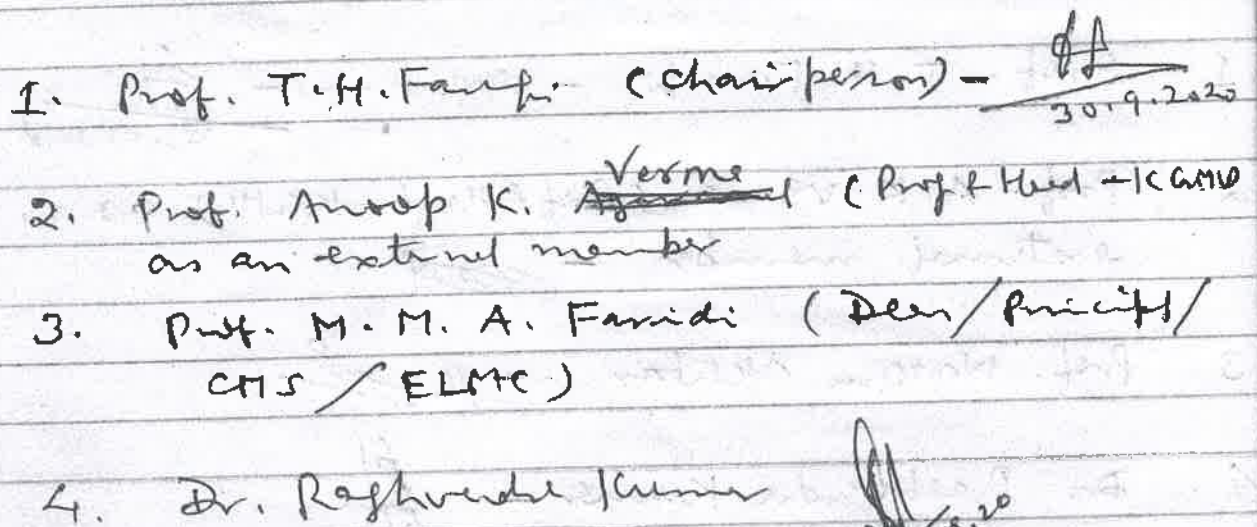 1. Prof. T.H. Farooqi (Chairperson) - 30.9.2020
2. Prof. Anoop K. Verma (Prof & Head - KGMU
as an external member
3. Prof. M. M. A. Faridi (Dean/Principal/
CMS / ELMC)
4. Dr. Raghvendra Kumar